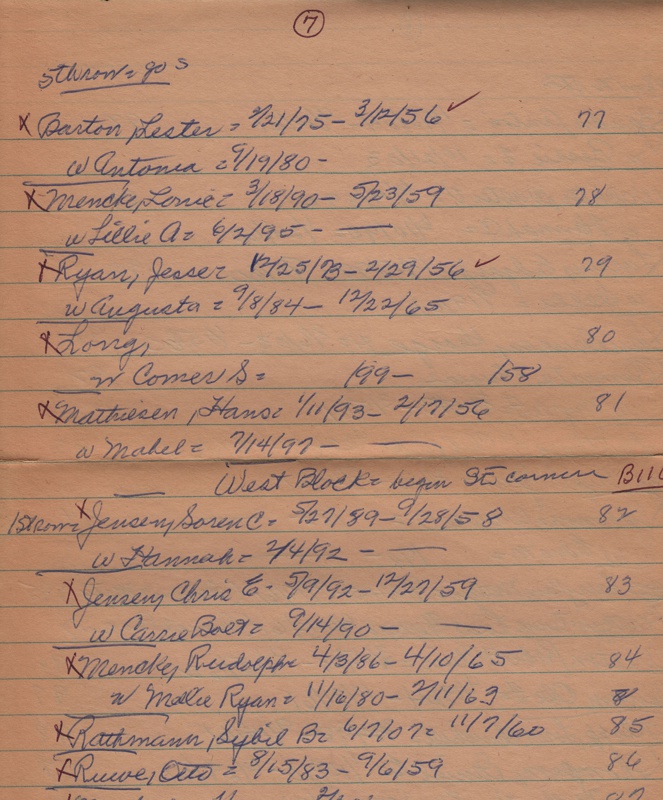 7
5th row = go s
x Barton, Lester = 2/21/75 - 3/12/56 ✓ 77
w Antonia = 9/19/80 -
x Mencke, Louie = 3/18/90 - 5/23/59 78
w Lillie A = 6/2/95 - —
x Ryan, Jesse = 12/25/73 - 2/29/56 ✓ 79
w Augusta = 9/8/84 - 12/22/65
x Long, 80
w Comer S = /99 - /58
x Mathiesen, Hans = 1/11/93 - 2/17/56 81
w Mabel = 7/14/97 - —
West Block = begin SE corner B11
1st row = x Jensen, Soren C = 5/27/89 - 9/28/58 82
w Hannah = 2/4/92 - —
x Jensen, Chris E - 5/9/92 - 12/27/59 83
w Carrie Boet = 9/14/90 - —
x Mencke, Rudolph = 4/3/86 - 4/10/65 84
w Mollie Ryan = 11/16/80 - 2/11/63
x Rathmann, Sybil B = 6/7/07 = 11/7/60 85
x Ruwe, Otto = 8/15/83 - 9/6/59 86